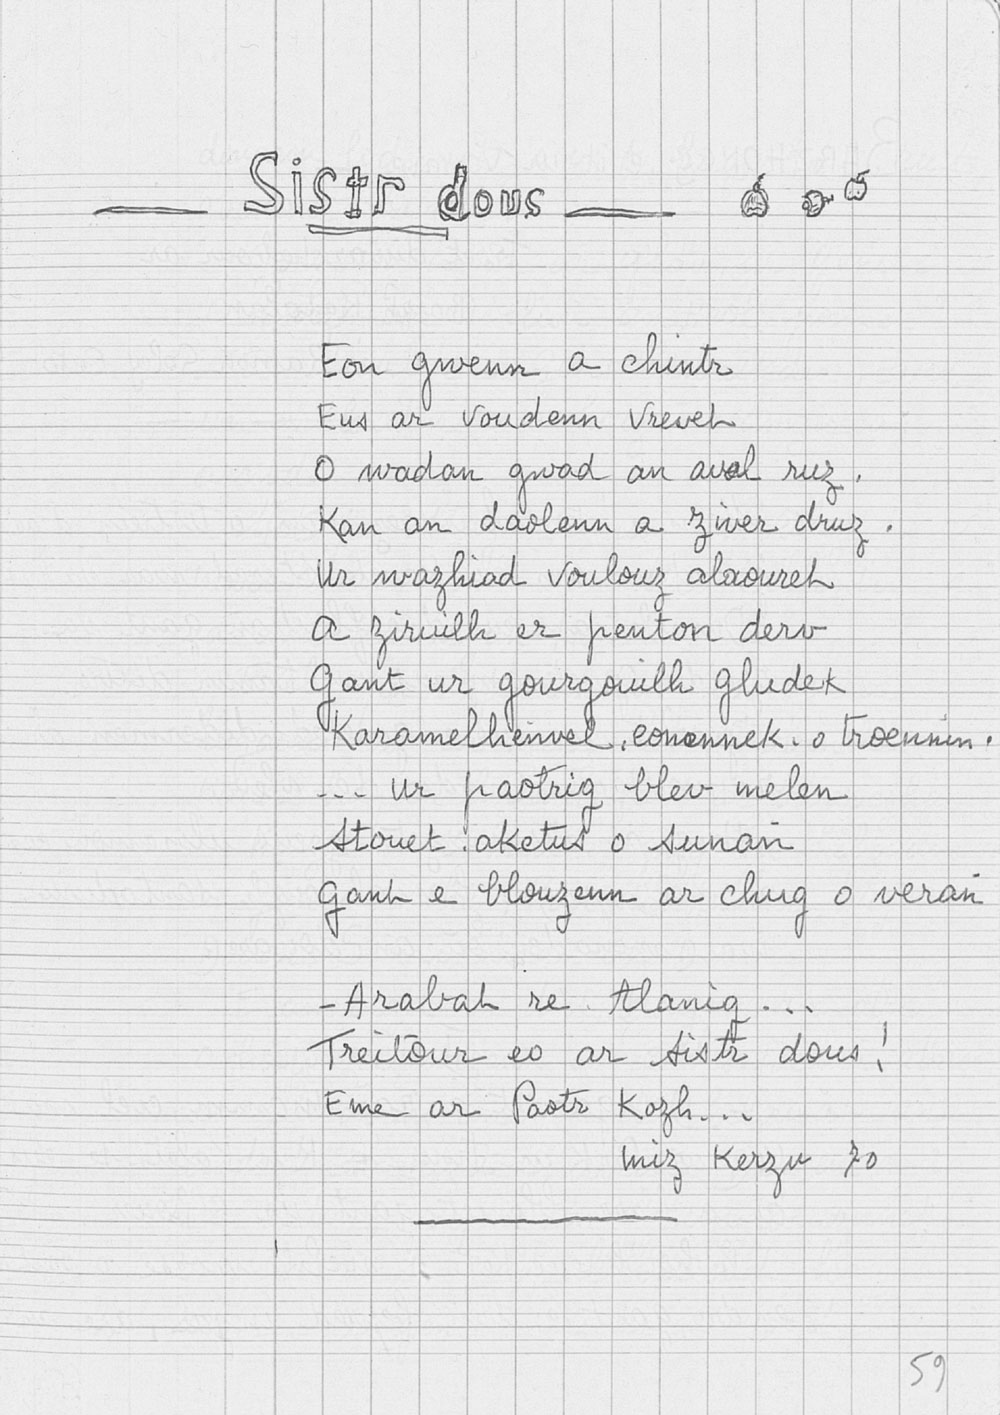 Sistr dous
Eon gwenn a chintr
Eus ar voudenn vreveh
O wadan gwad an aval ruz.
Kan an daolenn a ziver druz.
Ur wazhiad voulouz alaoureh
A ziruilh er penton derv
Gant ur gourgouilh gludek
Karamelheñvel, eonennek. o troennin.
... Ur paotrig blev melen
Stouet aketus o sunañ
Ganh e blouzenn ar chug o verañ
- Arabah re Alanig...
Treitour eo ar sistr dous!
Eme ar Paotr Kozh...
miz Kerzu 70
59